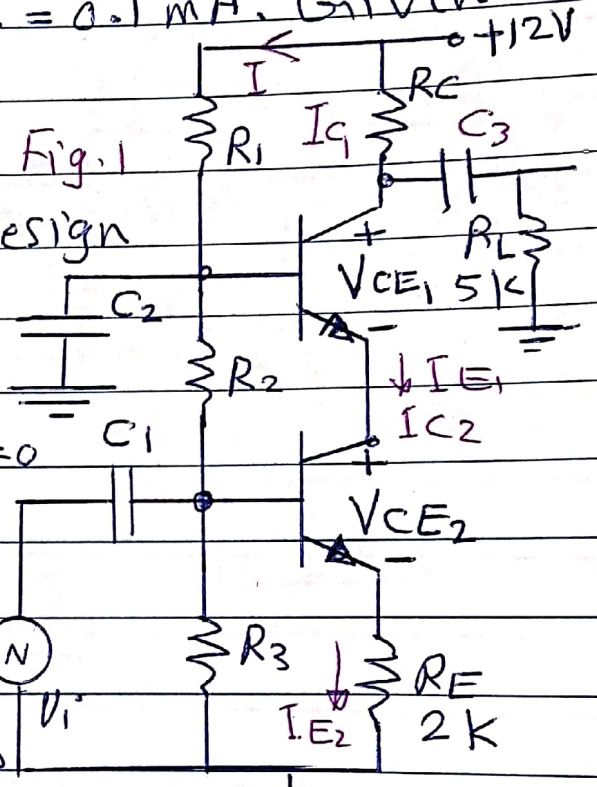 = 0.1 mA. Given
+12V
I
RC
R1
IC1
C3
Fig.1
esign
+
RL
VCE1
5K
C2
-
R2
IE1
C1
IC2
=0
+
VCE2
-
N
R3
RE
Vi
IE2
2K